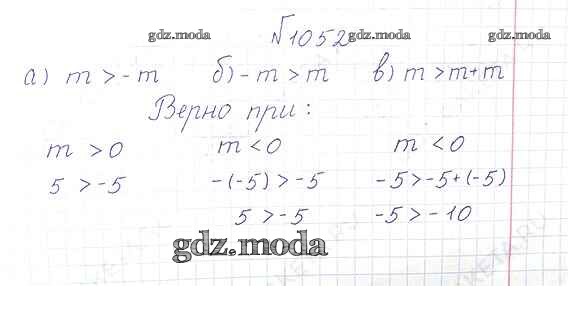 №1052
gdz.moda gdz.moda
а) m > -m б) -m > m в) m > m+m
Верно при:
m > 0 m < 0 m < 0
5 > -5 -(-5) > -5 -5 > -5+(-5)
5 > -5 -5 > -10
gdz.moda